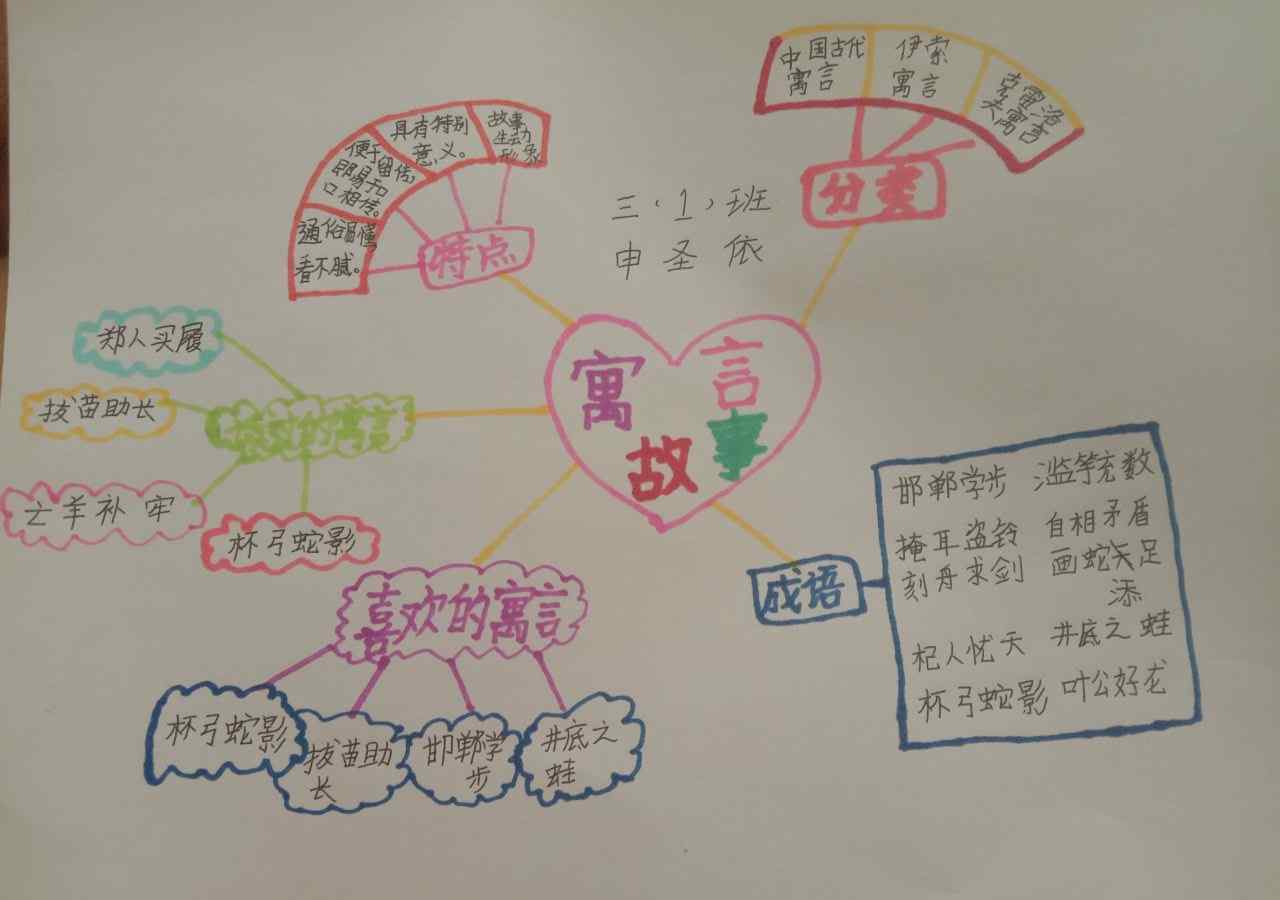 中国古代
寓言
伊索
寓言
克雷洛
夫寓言
分类
故事
生动
形象
具有特别
意义。
便于留传,
即易于口
口相传。
通俗易懂
看不腻。
特点
三(1)班
申圣依
寓言
故事
郑人买履
拔苗助长
亡羊补牢
杯弓蛇影
的寓言
喜欢的寓言
杯弓蛇影
拔苗助
长
邯郸学
步
井底之
蛙
成语
邯郸学步 滥竽充数
掩耳盗铃 自相矛盾
刻舟求剑 画蛇足
添
杞人忧天 井底之蛙
杯弓蛇影 叶公好龙